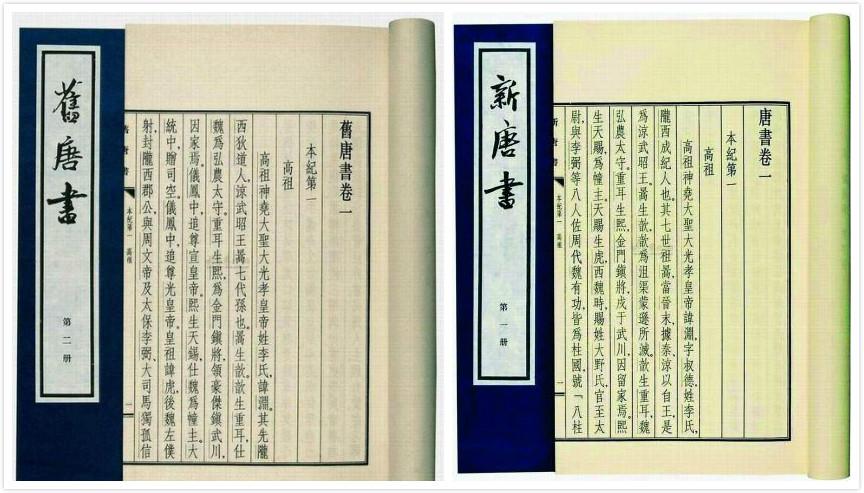 舊唐書
第二册
舊唐書卷一
本紀第一
高祖
高祖神堯大聖大光孝皇帝姓李氏，諱淵。其先隴
西狄道人，涼武昭王暠七代孫也。暠生歆。歆生重耳，仕
魏爲弘農太守。重耳生熙，爲金門鎮將，領豪傑鎮武川，
因家焉。儀鳳中，追尊宣皇帝。熙生天錫，仕魏爲幢主。大
統中，贈司空。儀鳳中，追尊光皇帝。皇祖諱虎，後魏左僕
射，封隴西郡公，與周文帝及太保李弼、大司馬獨孤信
舊唐書
本紀第一 高祖
一
新唐書
第一册
唐書卷一
本紀第一
高祖
高祖神堯大聖大光孝皇帝諱淵，字叔德，姓李氏，
隴西成紀人也。其七世祖暠，當晉末，據秦、涼以自王，是
爲涼武昭王。暠生歆，歆爲沮渠蒙遜所滅。歆生重耳，魏
弘農太守。重耳生熙，金門鎮將，戍于武川，因留家焉。熙
生天賜，爲幢主。天賜生虎，西魏時，賜姓大野氏，官至太
尉，與李弼等八人佐周代魏有功，皆爲柱國，號「八柱
新唐書
本紀第一 高祖
一